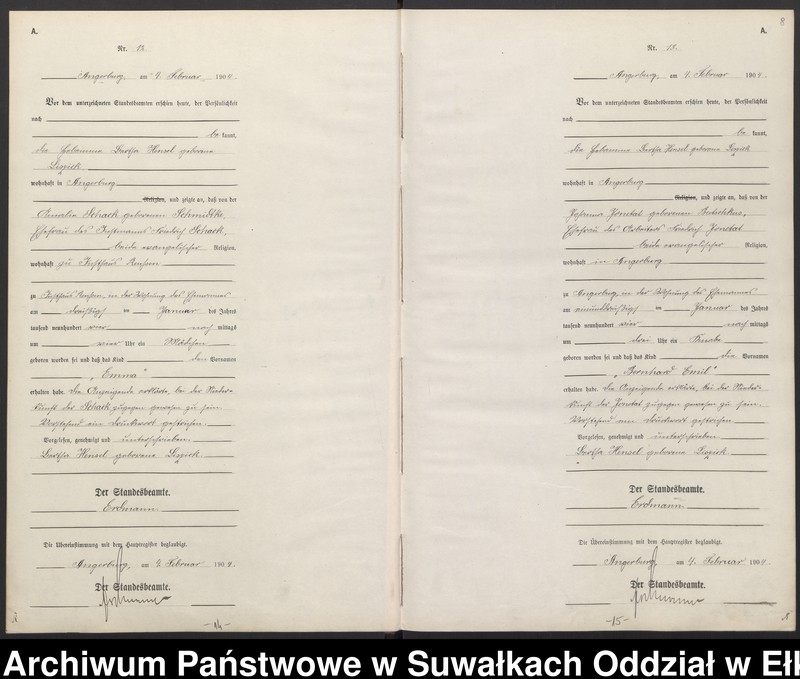 A.
Nr. 12.
Angerburg, am 4. Februar 1904.
Vor dem unterzeichneten Standesbeamten erschien heute, der Persönlichkeit
nach
be kannt,
die Hebamme Bertha Hensel geborene
wohnhaft in Angerburg
Religion, und zeigte an, daß von der
Amalie Schack geborenen Schmidtke,
Ehefrau des Friedrich Schack,
beide evangelischer Religion,
wohnhaft zu Forsthaus
zu Forsthaus in der Wohnung des Ehemannes
am dreißigsten Januar des Jahres
tausend neunhundert vier nach mittags
um vier Uhr ein Mädchen
geboren worden sei und daß das Kind den Vornamen
"Emma"
erhalten habe. Die Anzeigende erklärte, bei der Nieder-
kunft der Schack zugegen gewesen zu sein.
Vorstehend ein Druckwort gestrichen.
Vorgelesen, genehmigt und unterschrieben
Bertha Hensel geborene
Der Standesbeamte.
Erdmann
Die Übereinstimmung mit dem Hauptregister beglaubigt.
Angerburg, am 4. Februar 1904.
Der Standesbeamte.
Erdmann
-14-
8
A.
Nr. 13.
Angerburg, am 4. Februar 1904.
Vor dem unterzeichneten Standesbeamten erschien heute, der Persönlichkeit
nach
be kannt,
die Hebamme Bertha Hensel geborene
wohnhaft in Angerburg
Religion, und zeigte an, daß von der
Johanna Jonetat geborenen
Ehefrau des Arbeiters Friedrich Jonetat
beide evangelischer Religion,
wohnhaft in Angerburg
zu Angerburg in der Wohnung des Ehemannes
am einunddreißigsten Januar des Jahres
tausend neunhundert vier nach mittags
um drei Uhr ein Knabe
geboren worden sei und daß das Kind die Vornamen
"Bernhard Emil"
erhalten habe. Die Anzeigende erklärte, bei der Nieder-
kunft der Jonetat zugegen gewesen zu sein.
Vorstehend ein Druckwort gestrichen.
Vorgelesen, genehmigt und unterschrieben
Bertha Hensel geborene
Der Standesbeamte.
Erdmann
Die Übereinstimmung mit dem Hauptregister beglaubigt.
Angerburg, am 4. Februar 1904.
Der Standesbeamte.
Erdmann
-15-
Archiwum Państwowe w Suwałkach Oddział w Ełk